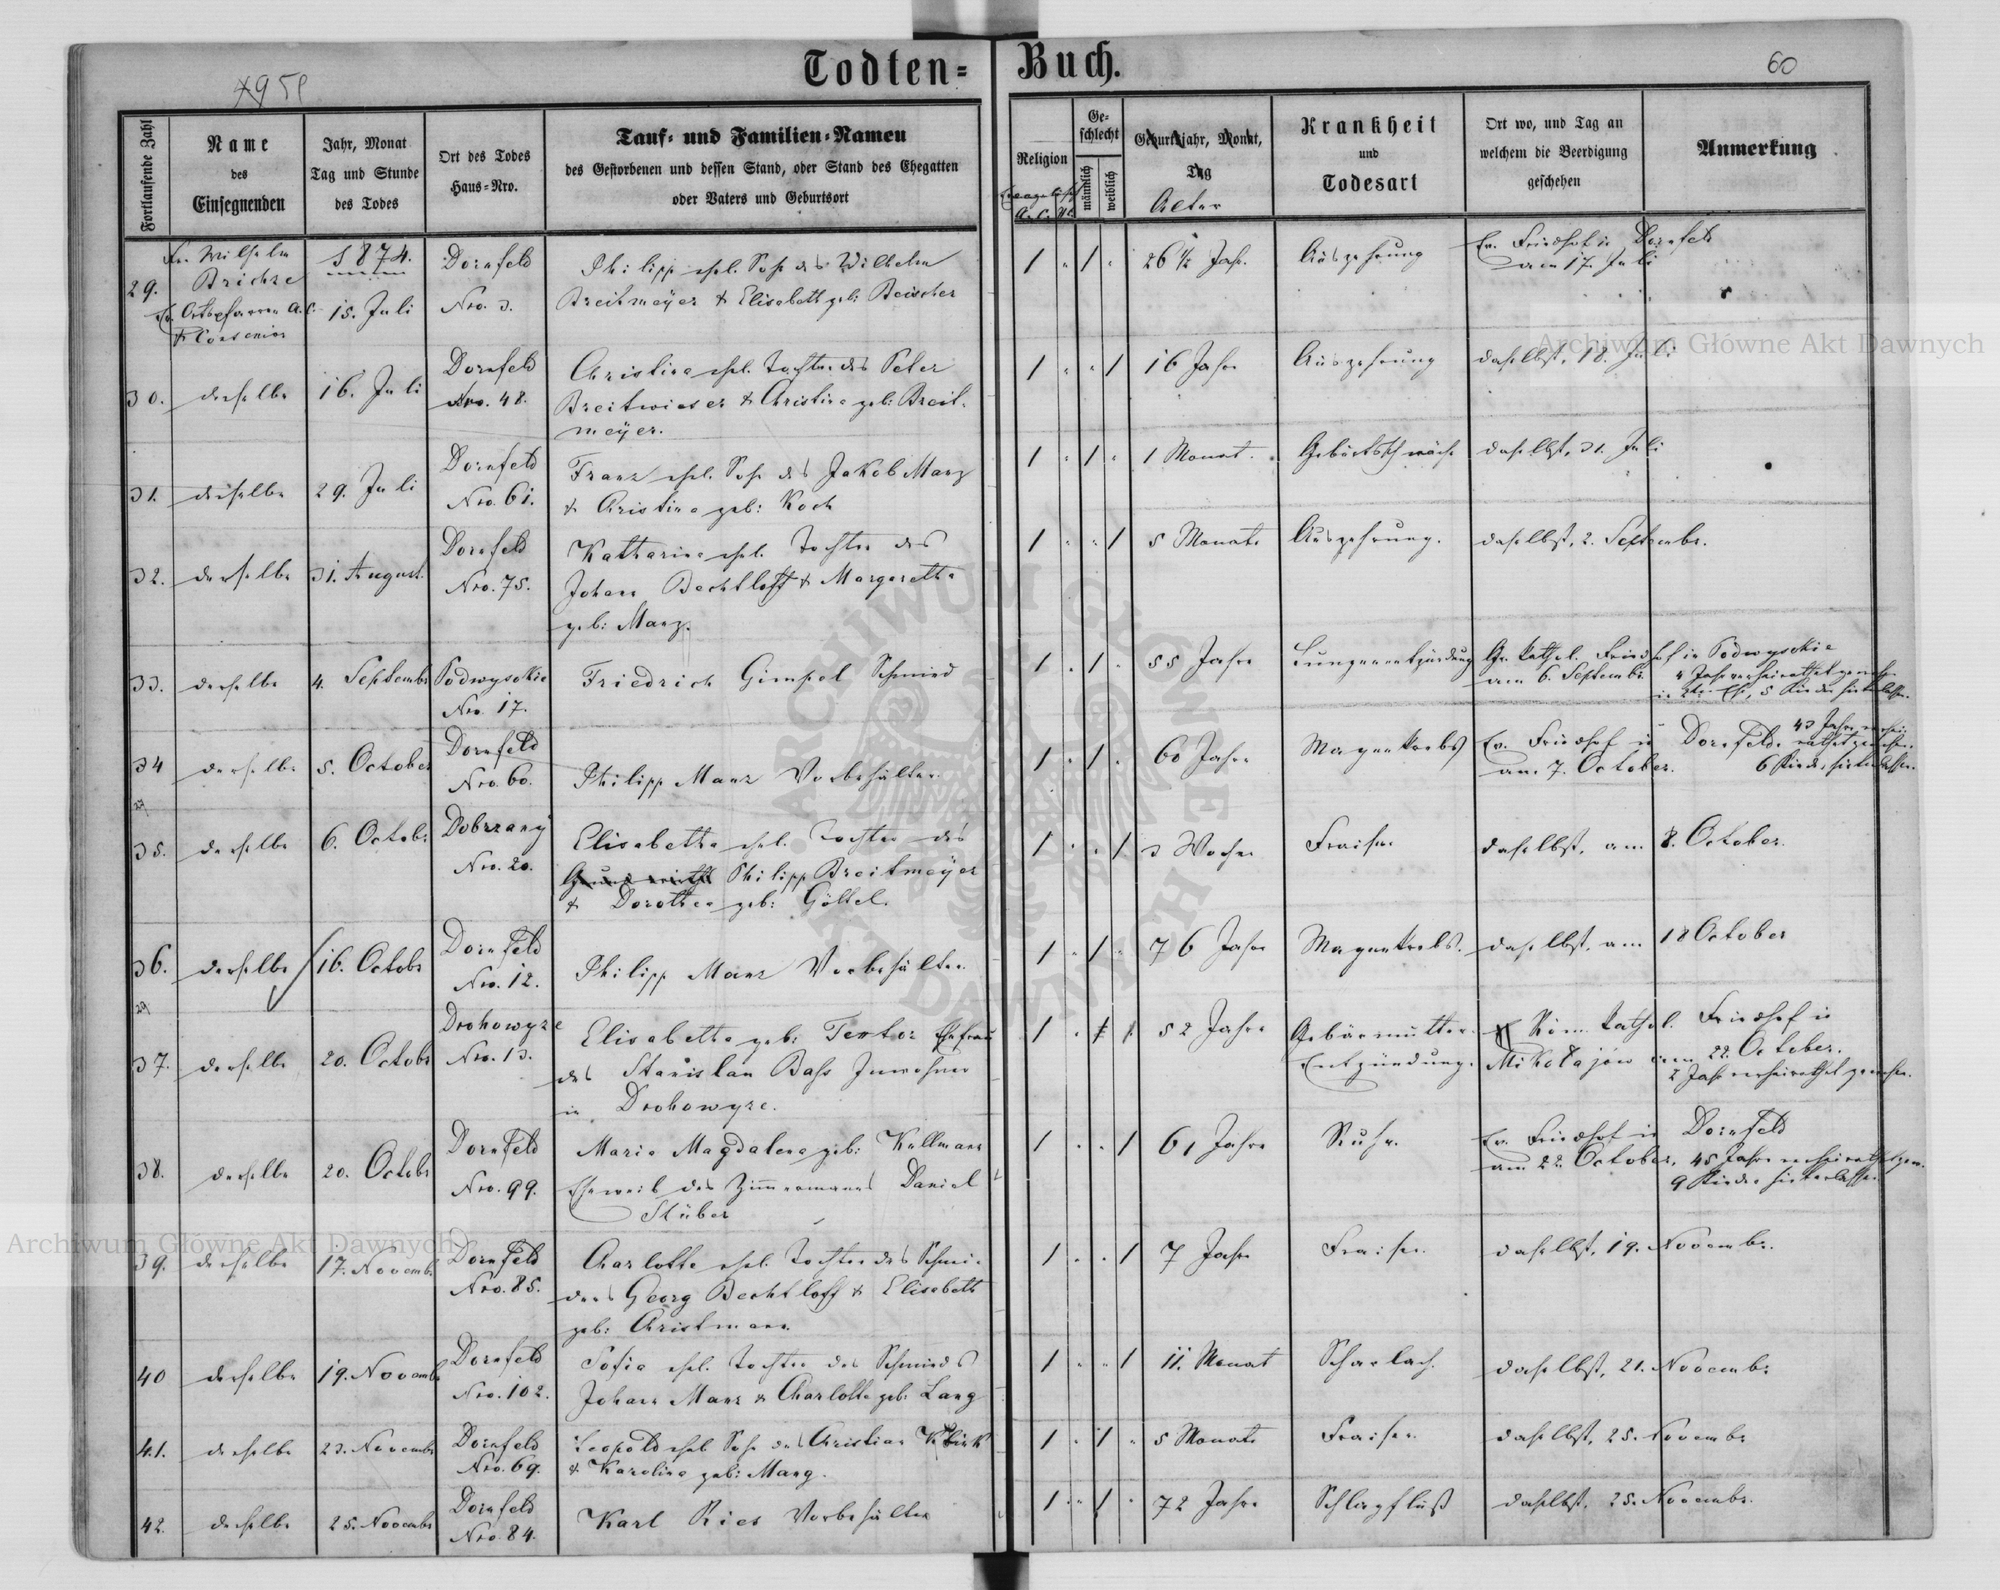 Todten-Buch.
4959
60
Fortlaufende Zahl
Name
des
Einsegnenden
Jahr, Monat
Tag und Stunde
des Todes
Ort des Todes
Haus-Nro.
Tauf- und Familien-Namen
des Gestorbenen und dessen Stand, oder Stand des Ehegatten
oder Vaters und Geburtsort
Religion
Evangelisch
A. C. H. C.
Geschlecht
männlich
weiblich
Geburtsjahr, Monat,
Tag
Alter
Krankheit
und
Todesart
Ort wo, und Tag an
welchem die Beerdigung
geschehen
Anmerkung
29.
Fr. Wilhelm
Brichze
Ev. Ortspfarrer A. C.
& Consenior
1874.
15. Juli
Dornfeld
Nro. 3.
Philipp ehel. Sohn des Wilhelm
Breitmeÿer & Elisabeth geb: Beischer
1 " 1 "
26 1/2 Jahr.
Auszehrung
Ev. Friedhof in Dornfeld
am 17. Juli
30.
derselbe
16. Juli
Dornfeld
Nro. 48.
Christina ehel. Tochter des Peter
Breitwieser & Christina geb: Breit-
meÿer.
1 " " 1
16 Jahre
Auszehrung
daselbst, 18. Juli
31.
derselbe
29. Juli
Dornfeld
Nro. 61.
Franz ehel. Sohn des Jakob Manz
& Christina geb: Koch
1 " 1 "
1 Monat.
Geburtsschwäche
daselbst, 31. Juli
32.
derselbe
31. August.
Dornfeld
Nro. 75.
Katharina ehel. Tochter des
Johann Bechtloff & Margaretha
geb: Manz.
1 " " 1
5 Monate
Auszehrung.
daselbst, 2. Septembr.
33.
derselbe
4. Septembr
Podwysokie
Nro. 17.
Friedrich Gimpel Schmied
1 " 1 "
55 Jahre
Lungenentzündung
Gr. kathol. Friedhof in Podwysokie
am 6. Septembr.
4 Jahr verheirathet gewesen
in 2ter Ehe, 5 Kinder hinterlassen.
34
derselbe
5. October
Dornfeld
Nro. 60.
Philipp Manz Vorbehälter
1 " 1 "
60 Jahre
Magenkrebs
Ev. Friedhof in Dornfeld.
am 7. October.
43 Jahre verhei-
rathet gewesen.
6 Kinder hinterlassen.
35.
derselbe
6. Octobr
Dobrzany
Nro. 20.
Elisabetha ehel. Tochter des
Philipp Breitmeÿer
& Dorothea geb: Göttel.
1 " " 1
3 Wochen
Fraisen
daselbst, am 8. October.
36.
derselbe
16. Octobr
Dornfeld
Nro. 12.
Philipp Manz Vorbehälter
1 " 1 "
76 Jahre
Magenkrebs.
daselbst, am 18 October
37.
derselbe
20. Octobr
Drohowyze
Nro. 13.
Elisabetha geb: Textor Ehefrau
des Stanislau Bass Inwohner
in Drohowyze.
1 " 1 1
52 Jahre
Gebärmutter-
Entzündung.
Röm. kathol. Friedhof in
Mikołajów am 22. October.
2 Jahr verheirathet gewesen.
38.
derselbe
20. Octobr
Dornfeld
Nro. 99.
Maria Magdalena geb: Kullmann
Eheweib des Zimmermanns Daniel
Stüber
1 " " 1
61 Jahre
Ruhr.
Ev. Friedhof in Dornfeld
am 22. October, 45 Jahre verheirathet gew.
9 Kinder hinterlassen
39.
derselbe
17. Novembr
Dornfeld
Nro. 85.
Charlotte ehel. Tochter des Schmie-
des Georg Bechtloff & Elisabeth
geb: Christmann.
1 " " 1
7 Jahre
Fraisen.
daselbst, 19. Novembr.
40
derselbe
19. Novembr
Dornfeld
Nro. 102.
Sofia ehel. Tochter des Schmieds
Johann Manz & Charlotte geb: Lang
1 " " 1
11. Monat
Scharlach.
daselbst, 21. Novembr
41.
derselbe
23. Novembr
Dornfeld
Nro. 69.
Leopold ehel Sohn des Christian
& Karolina geb: Mang.
1 " 1 "
5 Monate
Fraisen.
daselbst, 25. Novembr
42.
derselbe
25. Novembr
Dornfeld
Nro. 84.
Karl Ries Vorbehälter
1 " 1 "
72 Jahre
Schlagfluß
daselbst, 25. Novembr.
Archiwum Główne Akt Dawnych
Archiwum Główne Akt Dawnych
ARCHIWUM GŁÓWNE AKT DAWNYCH